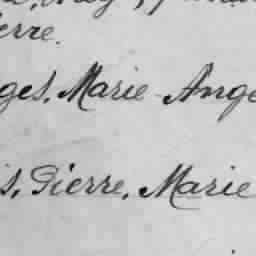 erre.
ges, Marie Ange
s, Pierre, Marie